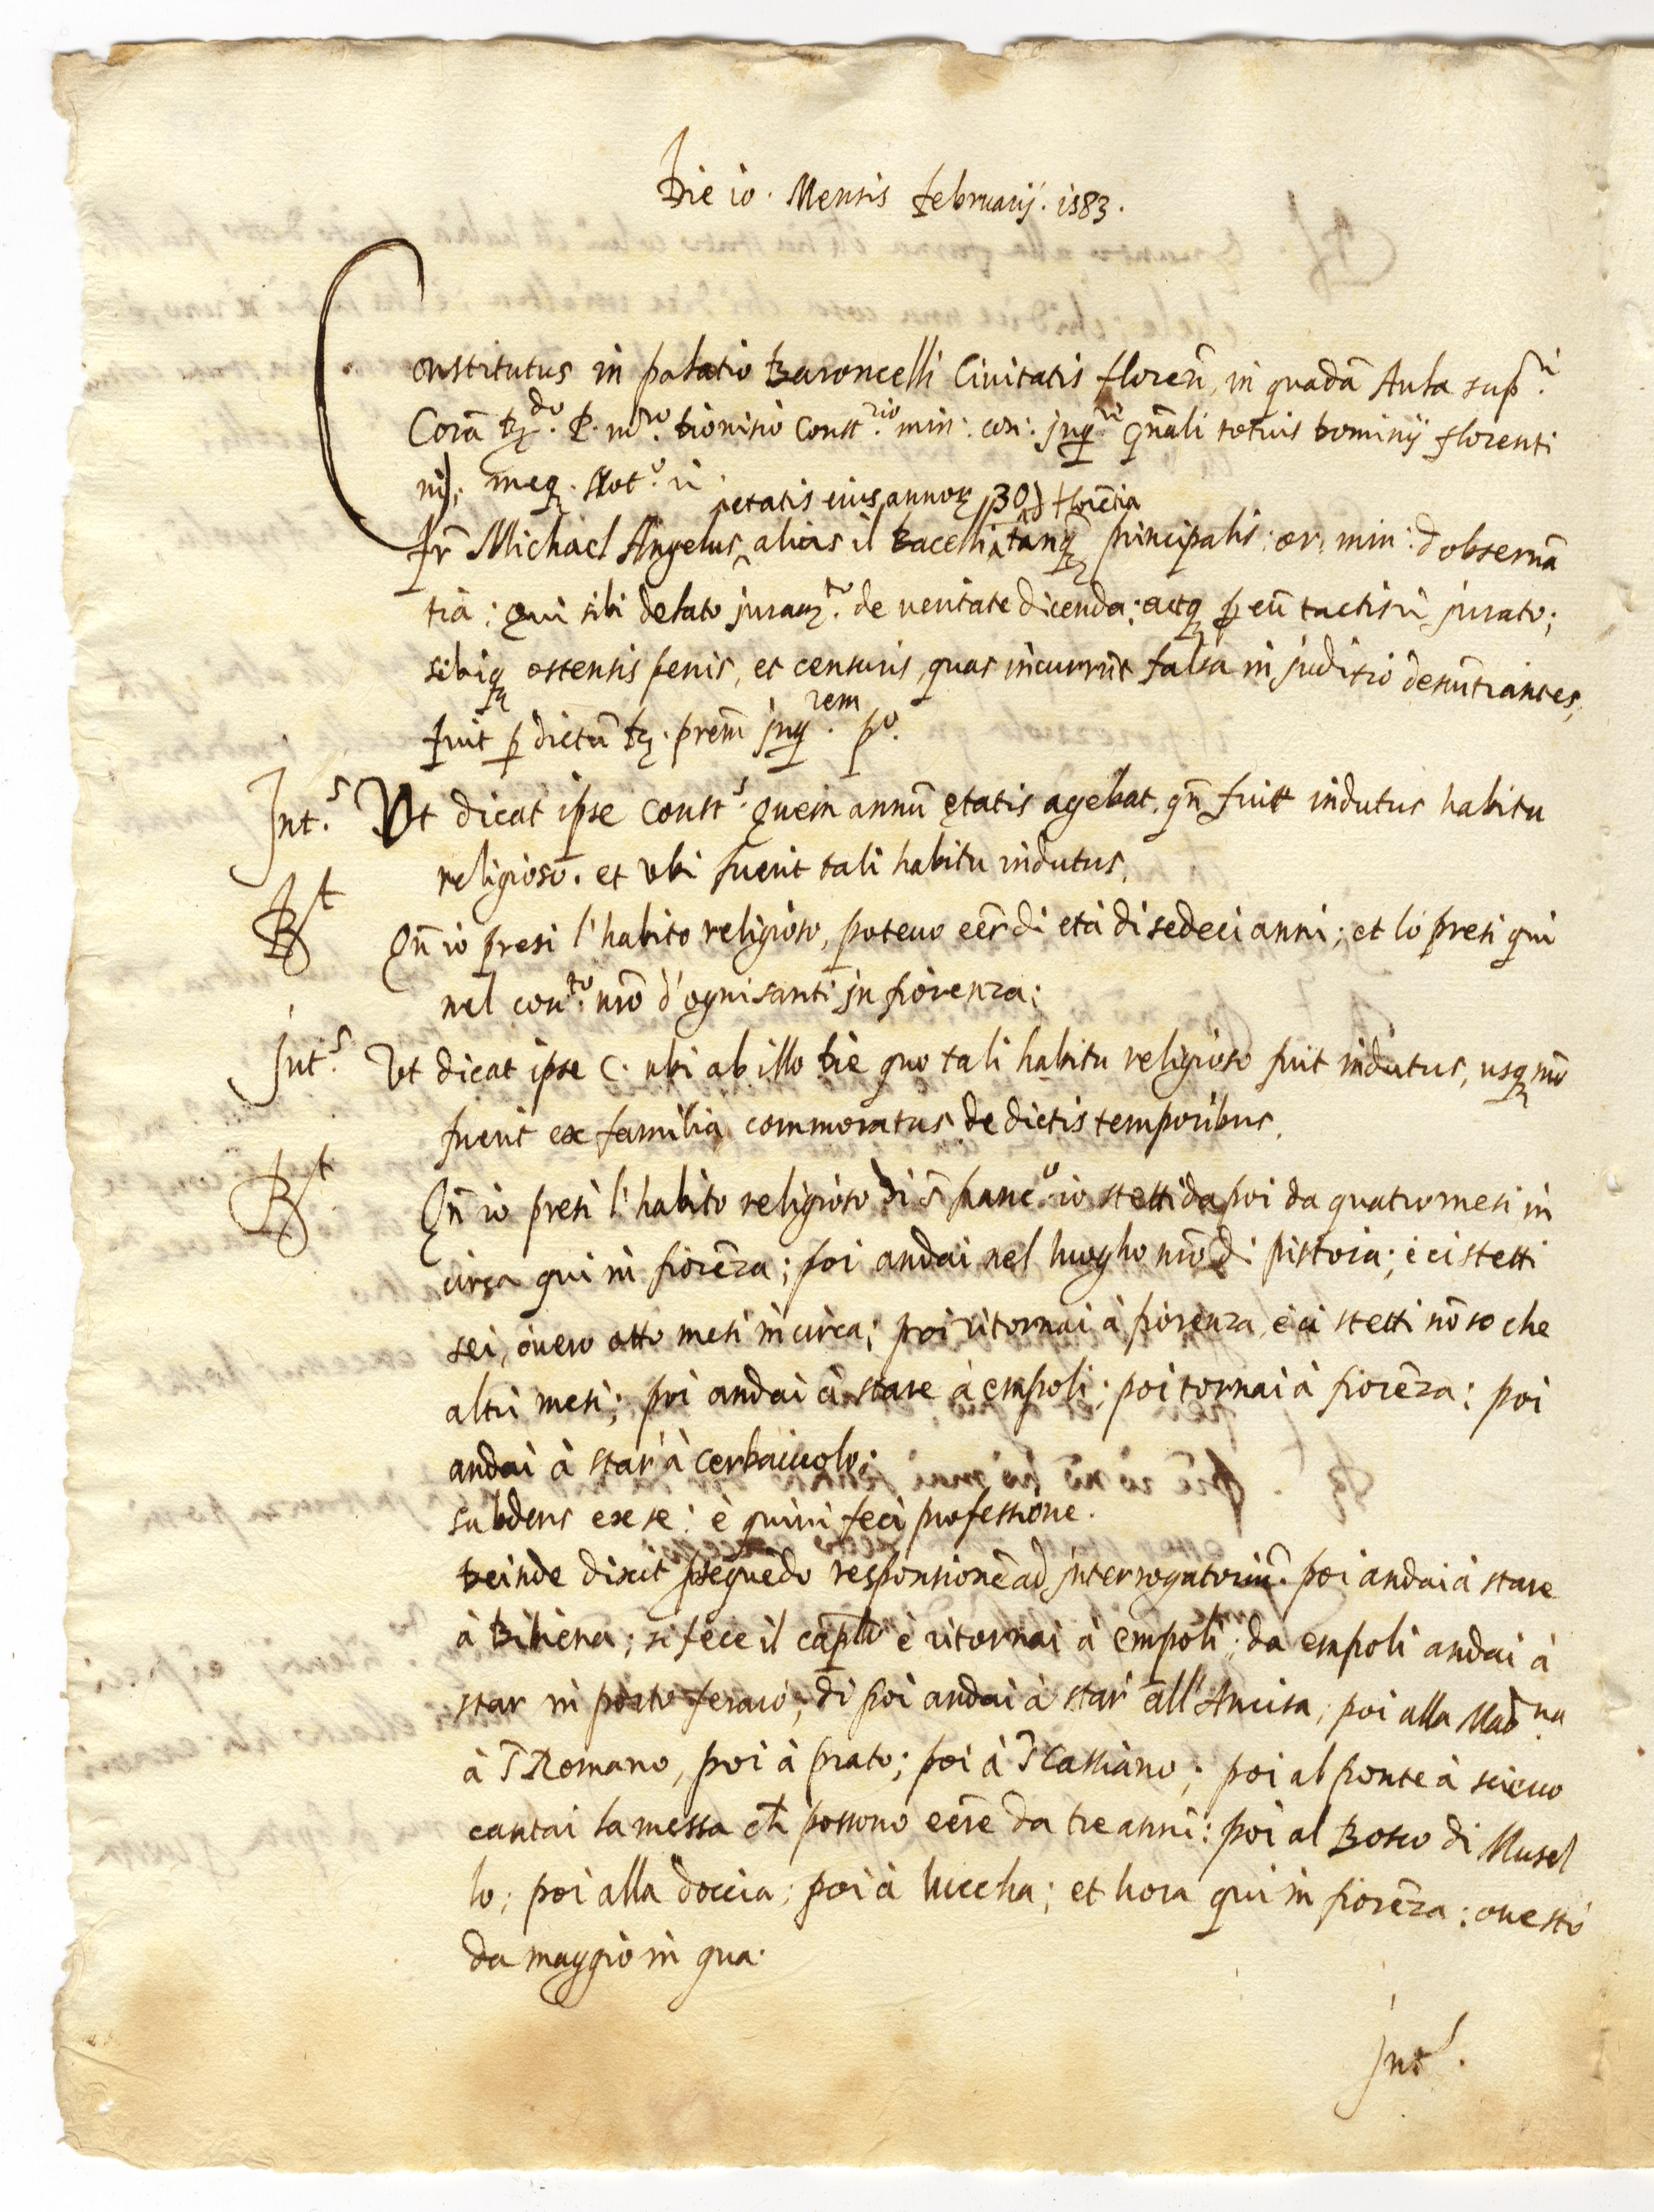 Die io. Mensis februarij. 1583.
Constitutus in palatio Baroncelli Ciuitatis florẽ, in quadã Aula supri
Corã Rdo. P. mro. Dionisio Constrio. min: con: jnqri gnãli totius Dominij florenti
ni), meq. Notro
etatis eius annoꝝ 30) florẽtia
fr̃ Michael Angelus, alias il Bacelli tanq principalis: or. min: d obseruã
tia; qui sibi delato juramto. de ueritate dicenda; actq ꝑ eũ tactis jurato;
sibiq ostensis penis, et censuris, quas incurrũt falsa in juditio denũtiantes,
fuit ꝑ dictũ R. prem̃ jnqrem. po.
Ints. Vt dicat ipse constts. quem annũ etatis agebat, qñ fuit indutus habitu
religioso. et vbi fuerit tali habitu indutus.
Rt Qñ io presi l'habito religioso, poteuo eer̃ di età di sedeci anni; et lo presi qui
nel conto. nrõ d'ognisanti jn fiorenza;
Ints. Vt dicat ipse C. ubi ab illo die quo tali habitu religioso fuit indutus, usq nũc
fuerit ex familia commoratus de dictis temporibus.
Rt Qñ io presi l'habito religioso di s̃ franco. io stetti dapoi da quatro mesi in
circa qui in fiorẽza; poi andai nel luogho nrõ di pistoia; è ci stetti
sei, òuero otto mesi in circa; poi ritornai à fiorenza, è ci stetti nõ so che
altri mesi; poi andai à stare à empoli; poi tornai à fiorẽza; poi
andai à star' à cerbaiuolo;
subdens ex se: è quiui feci professione.
Deinde dixit ꝓsequẽdo responsionẽ ad jnterrogatoriũ. poi andai à stare
à Bibiena; si fece il caplõ è ritornai à empoli; da empoli andai à
star in porto feraio; di poi andai à star all'Ancisa, poi alla Madna.
à S̃ Romano, poi à prato; poi à S̃ Cassiano; poi al ponte à sieuo
cantai la messa ch̃ possono eerẽ da tre anni: poi al Bosco di Musel
lo; poi alla doccia; poi à luccha; et hora qui in fiorẽza: oue stò
da maggio in qua.
Ints.